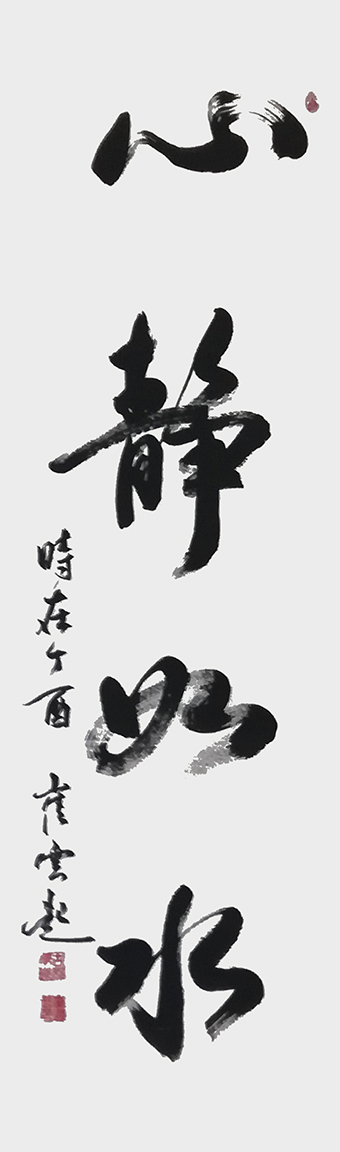 心静如水
時在丁酉 崔雲